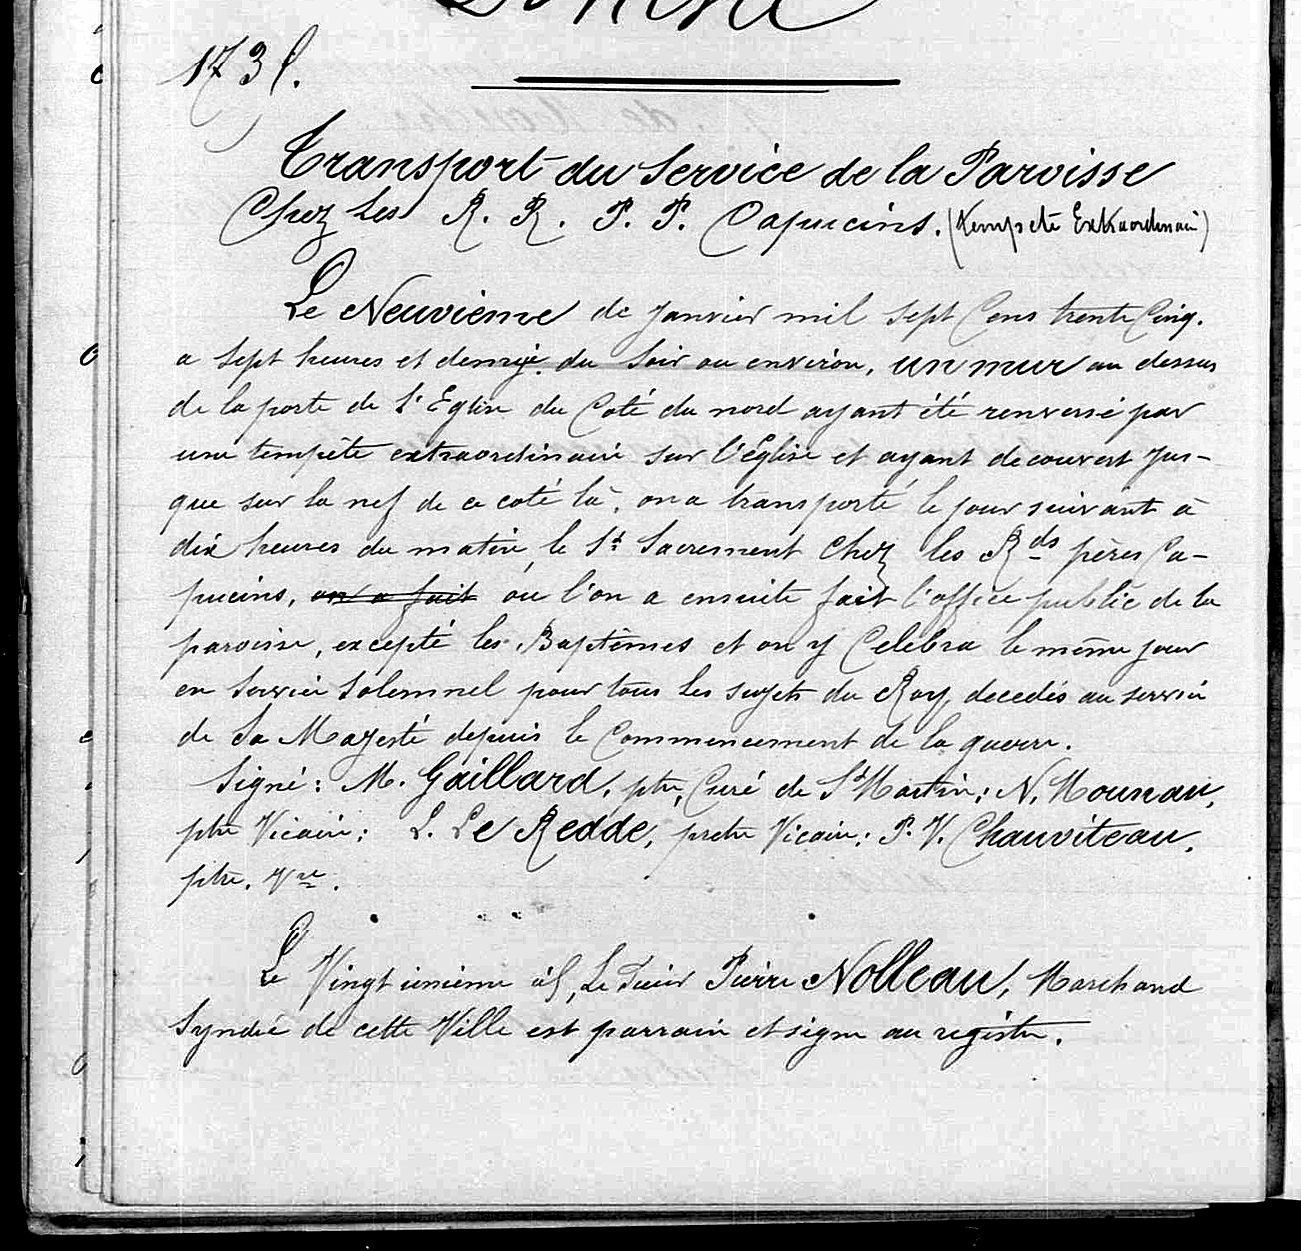 1735.
Transport du Service de la Paroisse
Chez les R. R. P. P. Capucins. (tempete Extraordinair)
Le Neuvième de janvier mil sept Cens trente Cinq.
a sept heures et demye du soir ou environ, un mur au dessus
de la porte de l'Eglise du Coté du nord ayant été renversé par
une tempète extraordinaire sur l'église et ayant decouvert jus-
que sur la nef de ce coté là, on a transporté le jour suivant à
dix heures du matin, le St Sacrement chez les Rds pères Ca-
pucins, on a fait ou l'on a ensuite fait l'office public de la
paroisse, excepté les Baptèmes et on y Celebra le même jour
en service solemnel pour tous les sujets du Roy, decedés au service
de Sa Majesté depuis le Commencement de la guerre.
Signé: M. Gaillard, ptre, Curé de St Martin; N. Mounau,
ptre Vicaire; L. Le Redde, pretre Vicaire; P. V. Chauviteau,
ptre. Vre.
Le Vingt unième id, Le Sieur Pierre Nolleau, Marchand
Syndic de cette Ville est parrain et signe au registre.